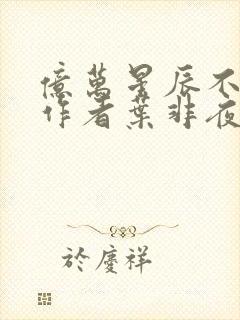 億萬星辰不
作者葉非夜
於慶祥